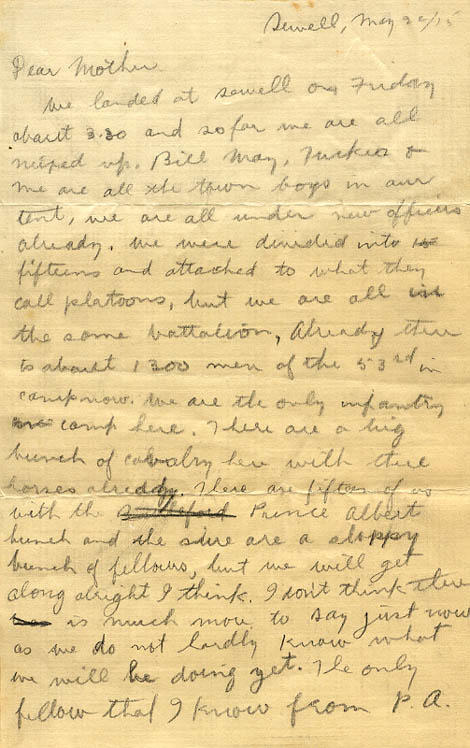 Sewell, May 29/15
Dear Mother
We landed at sewell on Friday
about 3.30 and sofar we are all
mixed up. Bill May, &
me are all the town boys in our
tent, we are all under new officers
already. We were divided into
fifteens and attached to what they
call platoons, but we are all in
the same battalion, Already there
is about 1300 men of the 53rd in
camp now. We are the only infantry
camp here. There are a big
bunch of cavalry here with there
horses already. There are fifteen of us
with the Prince Albert
bunch and the sure are a sloppy
bunch of fellows, but we will get
along alright I think. I don't think there
is much more to say just now
as we do not hardly know what
we will be doing yet. The only
fellow that I know from P.A.